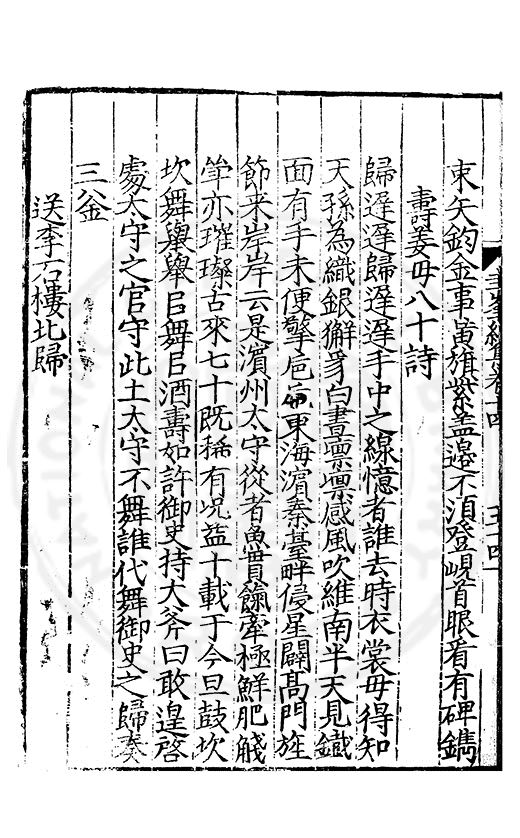 束矢鈞金事黃旗紫蓋邊不須登峴首眼看有碑鐫
壽姜母八十詩
歸遲遲歸遲遲手中之線憶者誰去時衣裳母得知
天孫為織銀獬豸白晝凛凛感風吹維南半天見鐵
面有手未便擎巵東海濵秦臺畔侵星闢髙門旌
節来岸岸云是濵州太守從者魚貫餼牽極鮮肥觥
斝亦璀璨古來七十既稱有况益十載于今旦鼓坎
坎舞舉舉㠯舞㠯酒壽如許御史持大斧曰敢遑啓
處太守之官守此土太守不舞誰代舞御史之歸奏
三釡
送李石樓北歸
卷十四
五十四